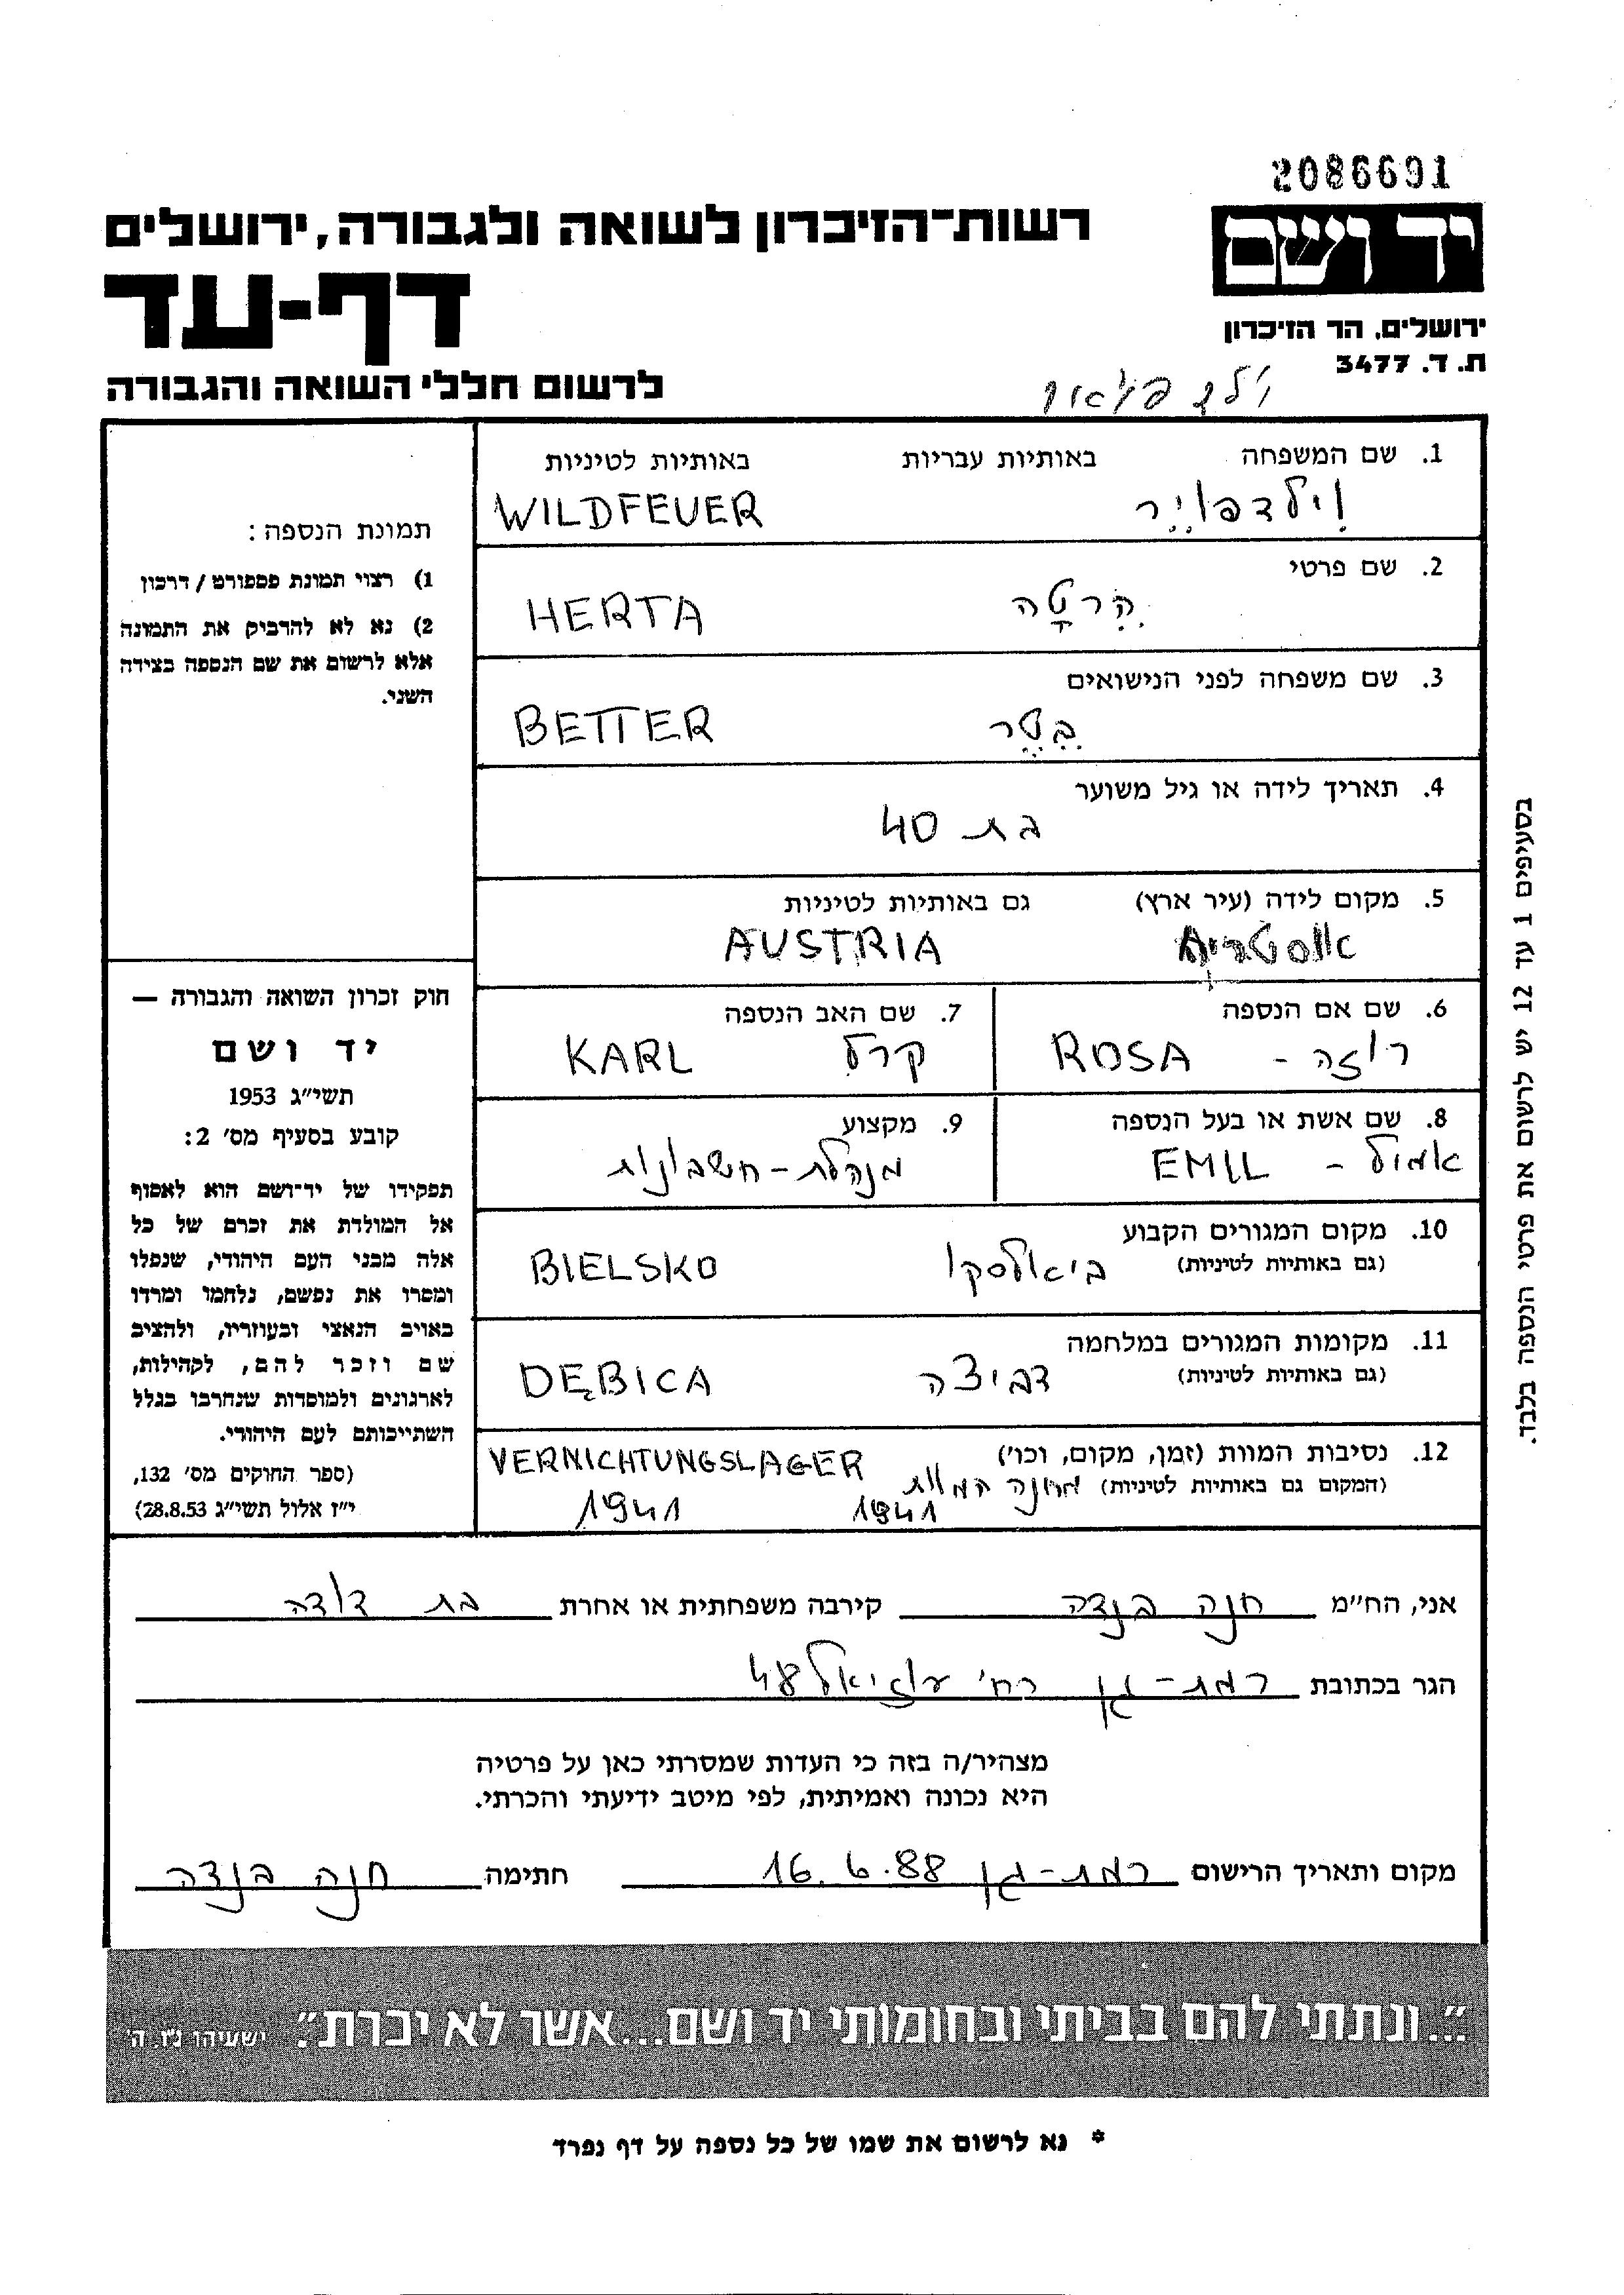 2086691
יד ושם
ירושלים. הר הזיכרון
ת. ד. 3477
רשות־הזיכרון לשואה ולגבורה, ירושלים
דף-עד
לרשום חללי השואה והגבורה
1. שם המשפחה באותיות עבריות באותיות לטיניות
וִילדפוֹיֵר WILDFEUER
2. שם פרטי
הֶרְטָה HERTA
3. שם משפחה לפני הנישואים
בֶּטֶר BETTER
4. תאריך לידה או גיל משוער
בת 40
5. מקום לידה (עיר ארץ) גם באותיות לטיניות
אוסטריה AUSTRIA
6. שם אם הנספה
רוזה - ROSA
7. שם האב הנספה
קרל KARL
8. שם אשת או בעל הנספה
אמיל - EMIL
9. מקצוע
מנהלת-חשבונות
10. מקום המגורים הקבוע
(גם באותיות לטיניות)
ביאלסקו BIELSKO
11. מקומות המגורים במלחמה
(גם באותיות לטיניות)
דביצה DĘBICA
12. נסיבות המוות (זמן, מקום, וכו')
(המקום גם באותיות לטיניות)
מחנה המוות VERNICHTUNGSLAGER
1941 1941
תמונת הנספה:
1) רצוי תמונת פספורט / דרכון
2) נא לא להדביק את התמונה
אלא לרשום את שם הנספה בצידה
השני.
חוק זכרון השואה והגבורה —
יד ושם
תשי״ג 1953
קובע בסעיף מס׳ 2:
תפקידו של יד־ושם הוא לאסוף
אל המולדת את זכרם של כל
אלה מבני העם היהודי, שנפלו
ומסרו את נפשם, נלחמו ומרדו
באויב הנאצי ובעוזריו, ולהציב
שם וזכר להם, לקהילות,
לארגונים ולמוסדות שנחרבו בגלל
השתייכותם לעם היהודי.
(ספר החוקים מס׳ 132,
י״ז אלול תשי״ג 28.8.53)
בסעיפים 1 עד 12 יש לרשום את פרטי הנספה בלבד.
אני, הח״מ חנה בנדה קירבה משפחתית או אחרת בת דודה
הגר בכתובת רמת-גן רח׳ עוזיאל 48
מצהיר/ה בזה כי העדות שמסרתי כאן על פרטיה
היא נכונה ואמיתית, לפי מיטב ידיעתי והכרתי.
מקום ותאריך הרישום רמת-גן 16.6.88 חתימה חנה בנדה
״...ונתתי להם בביתי ובחומותי יד ושם...אשר לא יכרת״. ישעיהו נ״ו. ה׳
* נא לרשום את שמו של כל נספה על דף נפרד